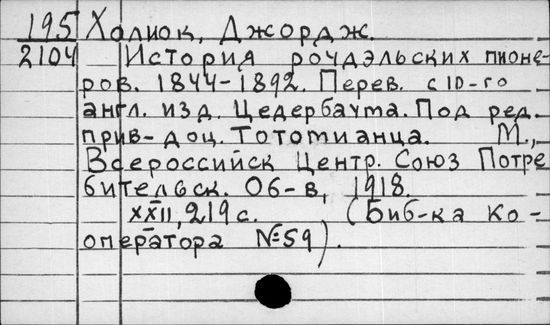 195 Холиок, Джордж.
2104 История рочдэльских пионе-
ров. 1844-1892. Перев. с 10-го
англ. изд. Цедербаума. Под ред.
прив-доц. Тотомианца. М.,
Всероссийск Центр. Союз Потре
бительск. Об-в, 1918.
XXII, 219 с. (Биб-ка Ко-
оператора №59).